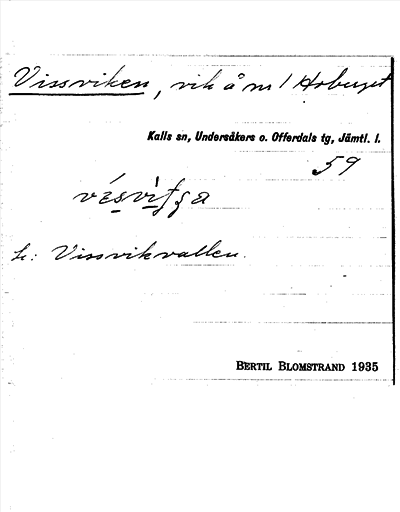 Vissviken, vik å nr 1 Hoberget
Kalls sn, Undersåkers o. Offerdals tg, Jämtl. l.
59
h: Vissvikvallen.
BERTIL BLOMSTRAND 1935